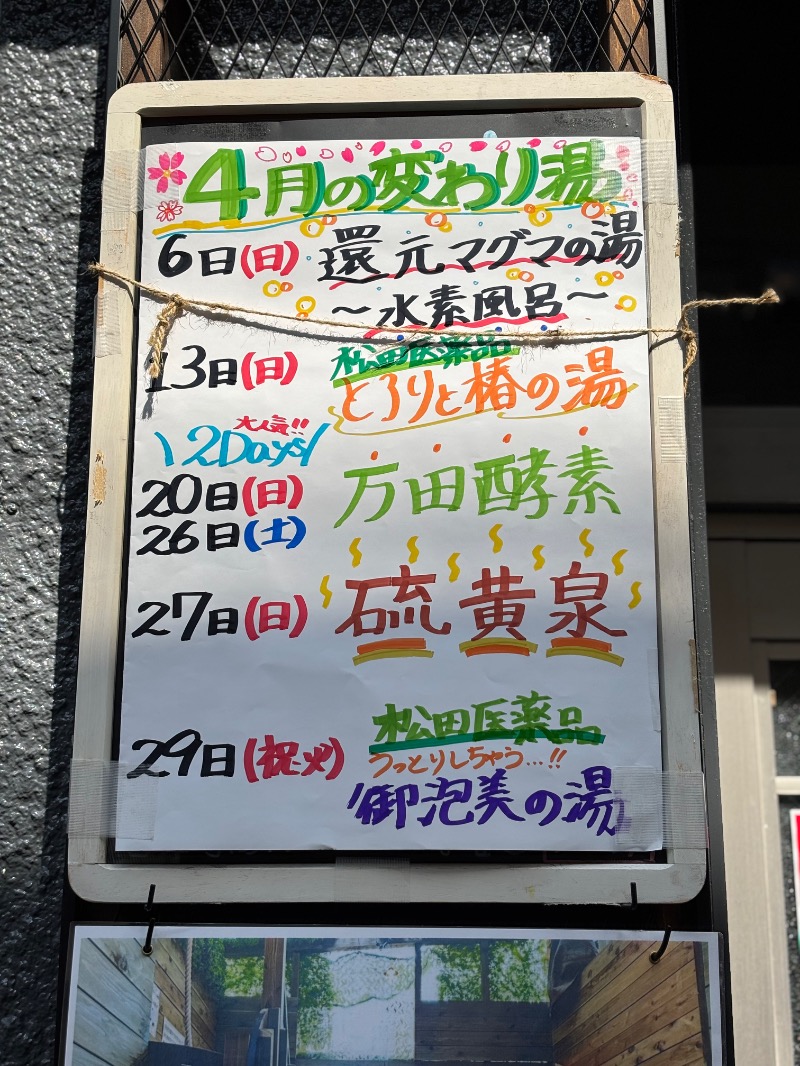 4月の変わり湯
6日(日) 還元マグマの湯
～水素風呂～
松田医薬品
13日(日) とろりと椿の湯
大人気!!
\2Days/
20日(日) 万田酵素
26日(土)
27日(日) 硫黄泉
松田医薬品
29日(祝火) うっとりしちゃう…!!
御泡美の湯